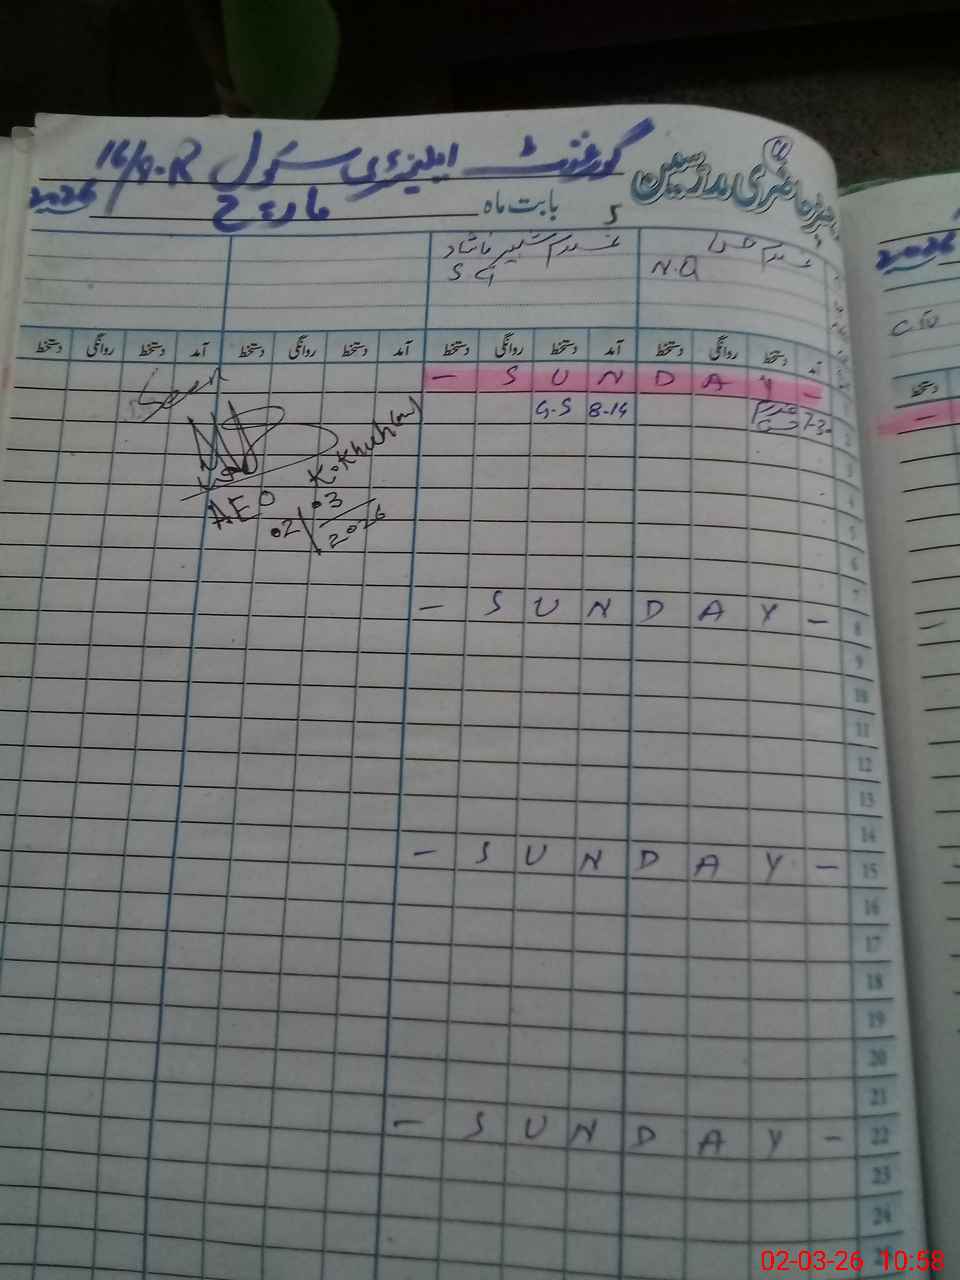 رجسٹر حاضری مدرسین
گورنمنٹ ایلیمنٹری سکول 16/9-R
بابت ماہ مارچ 2026
غلام شبیر
N.Q
آمد دستخط روانگی دستخط آمد دستخط روانگی دستخط آمد دستخط روانگی دستخط آمد دستخط روانگی دستخط
- S U N D A Y -
7-30 8-14 G-S
Seen
AEO K.Khuh(w)
02/03/2026
2
3
4
5
6
7
8 - S U N D A Y -
9
10
11
12
13
14
15 - S U N D A Y -
16
17
18
19
20
21
22 - S U N D A Y -
23
24
25
2026
دستخط
02-03-26 10:58